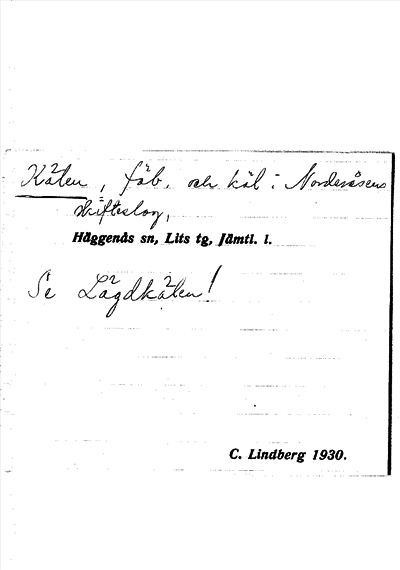 Kålen, fäb. och köl i Norderåsens
skifteslag,
Häggenås sn, Lits tg, Jämtl. l.
Se Lägdkålen!
C. Lindberg 1930.